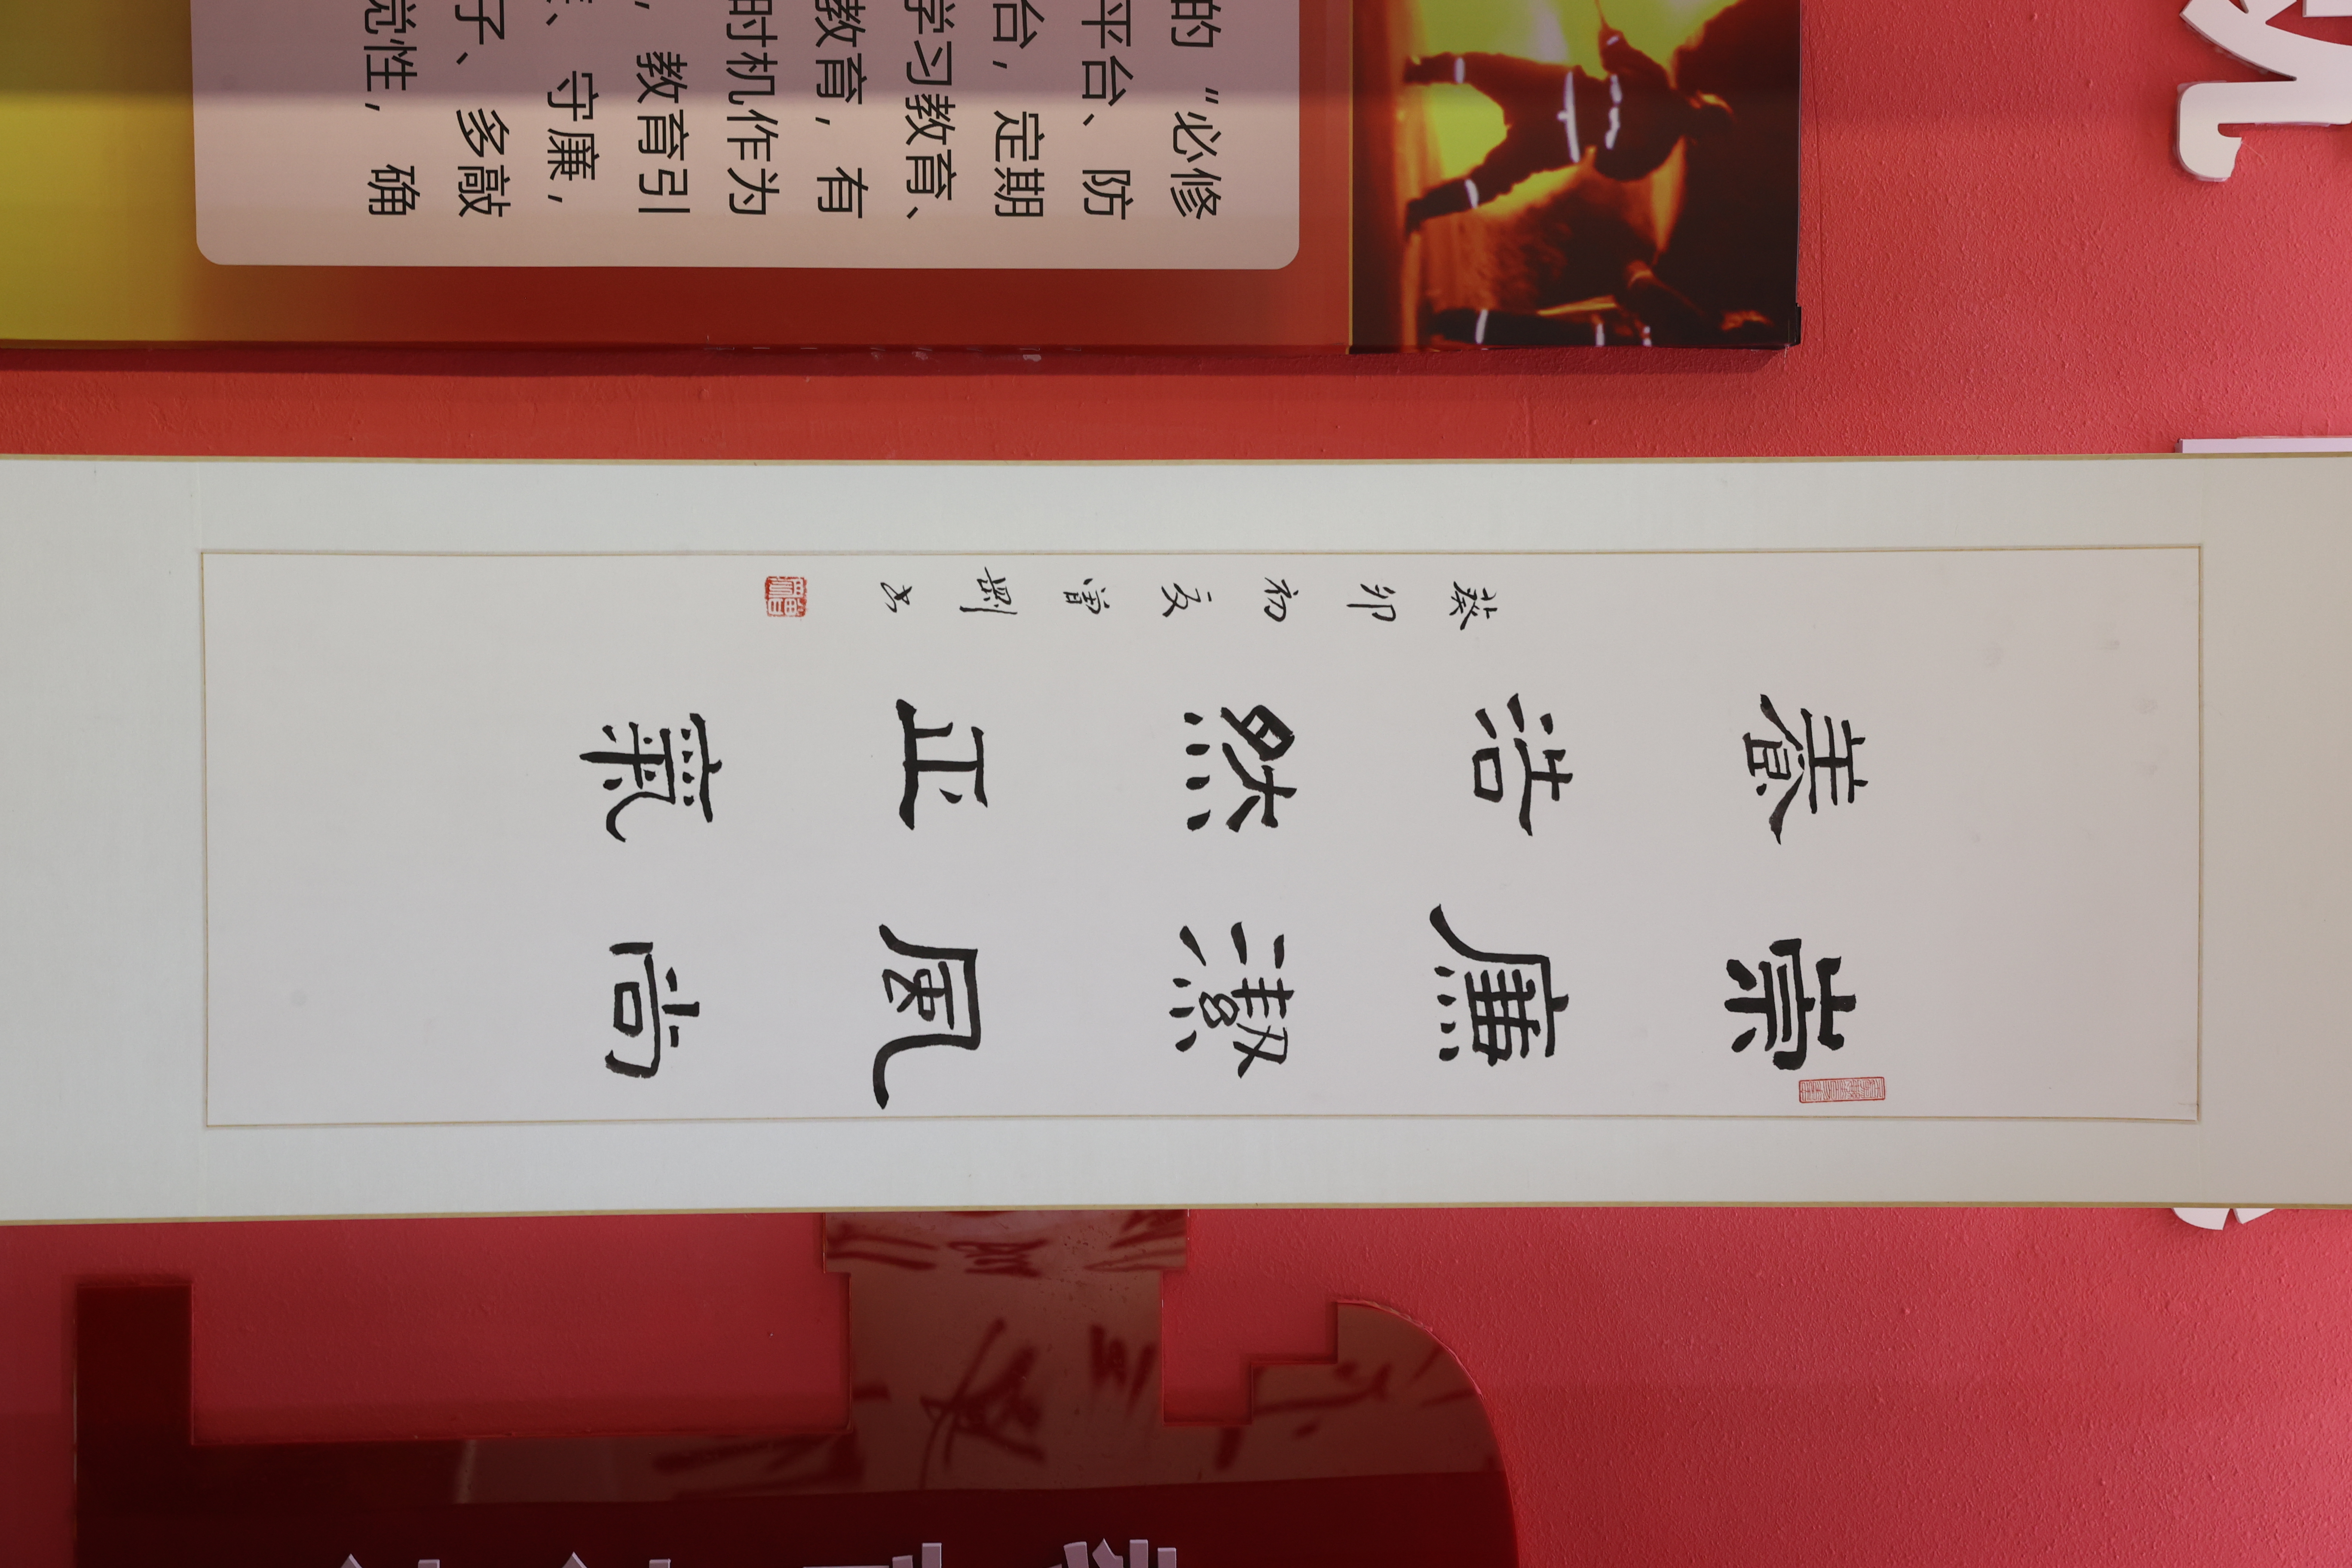 的“必修
平台、防
台，定期
学习教育、
教育，有
时机作为
，教育引
、守廉，
子、多敲
党性，确
崇廉潔風尚
養浩然正氣
癸卯初夏曾剛书